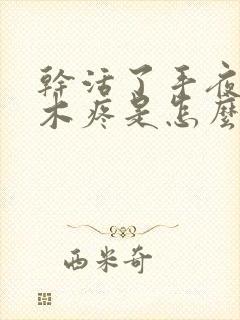 幹活了手夜
木疼是怎麼
西米奇